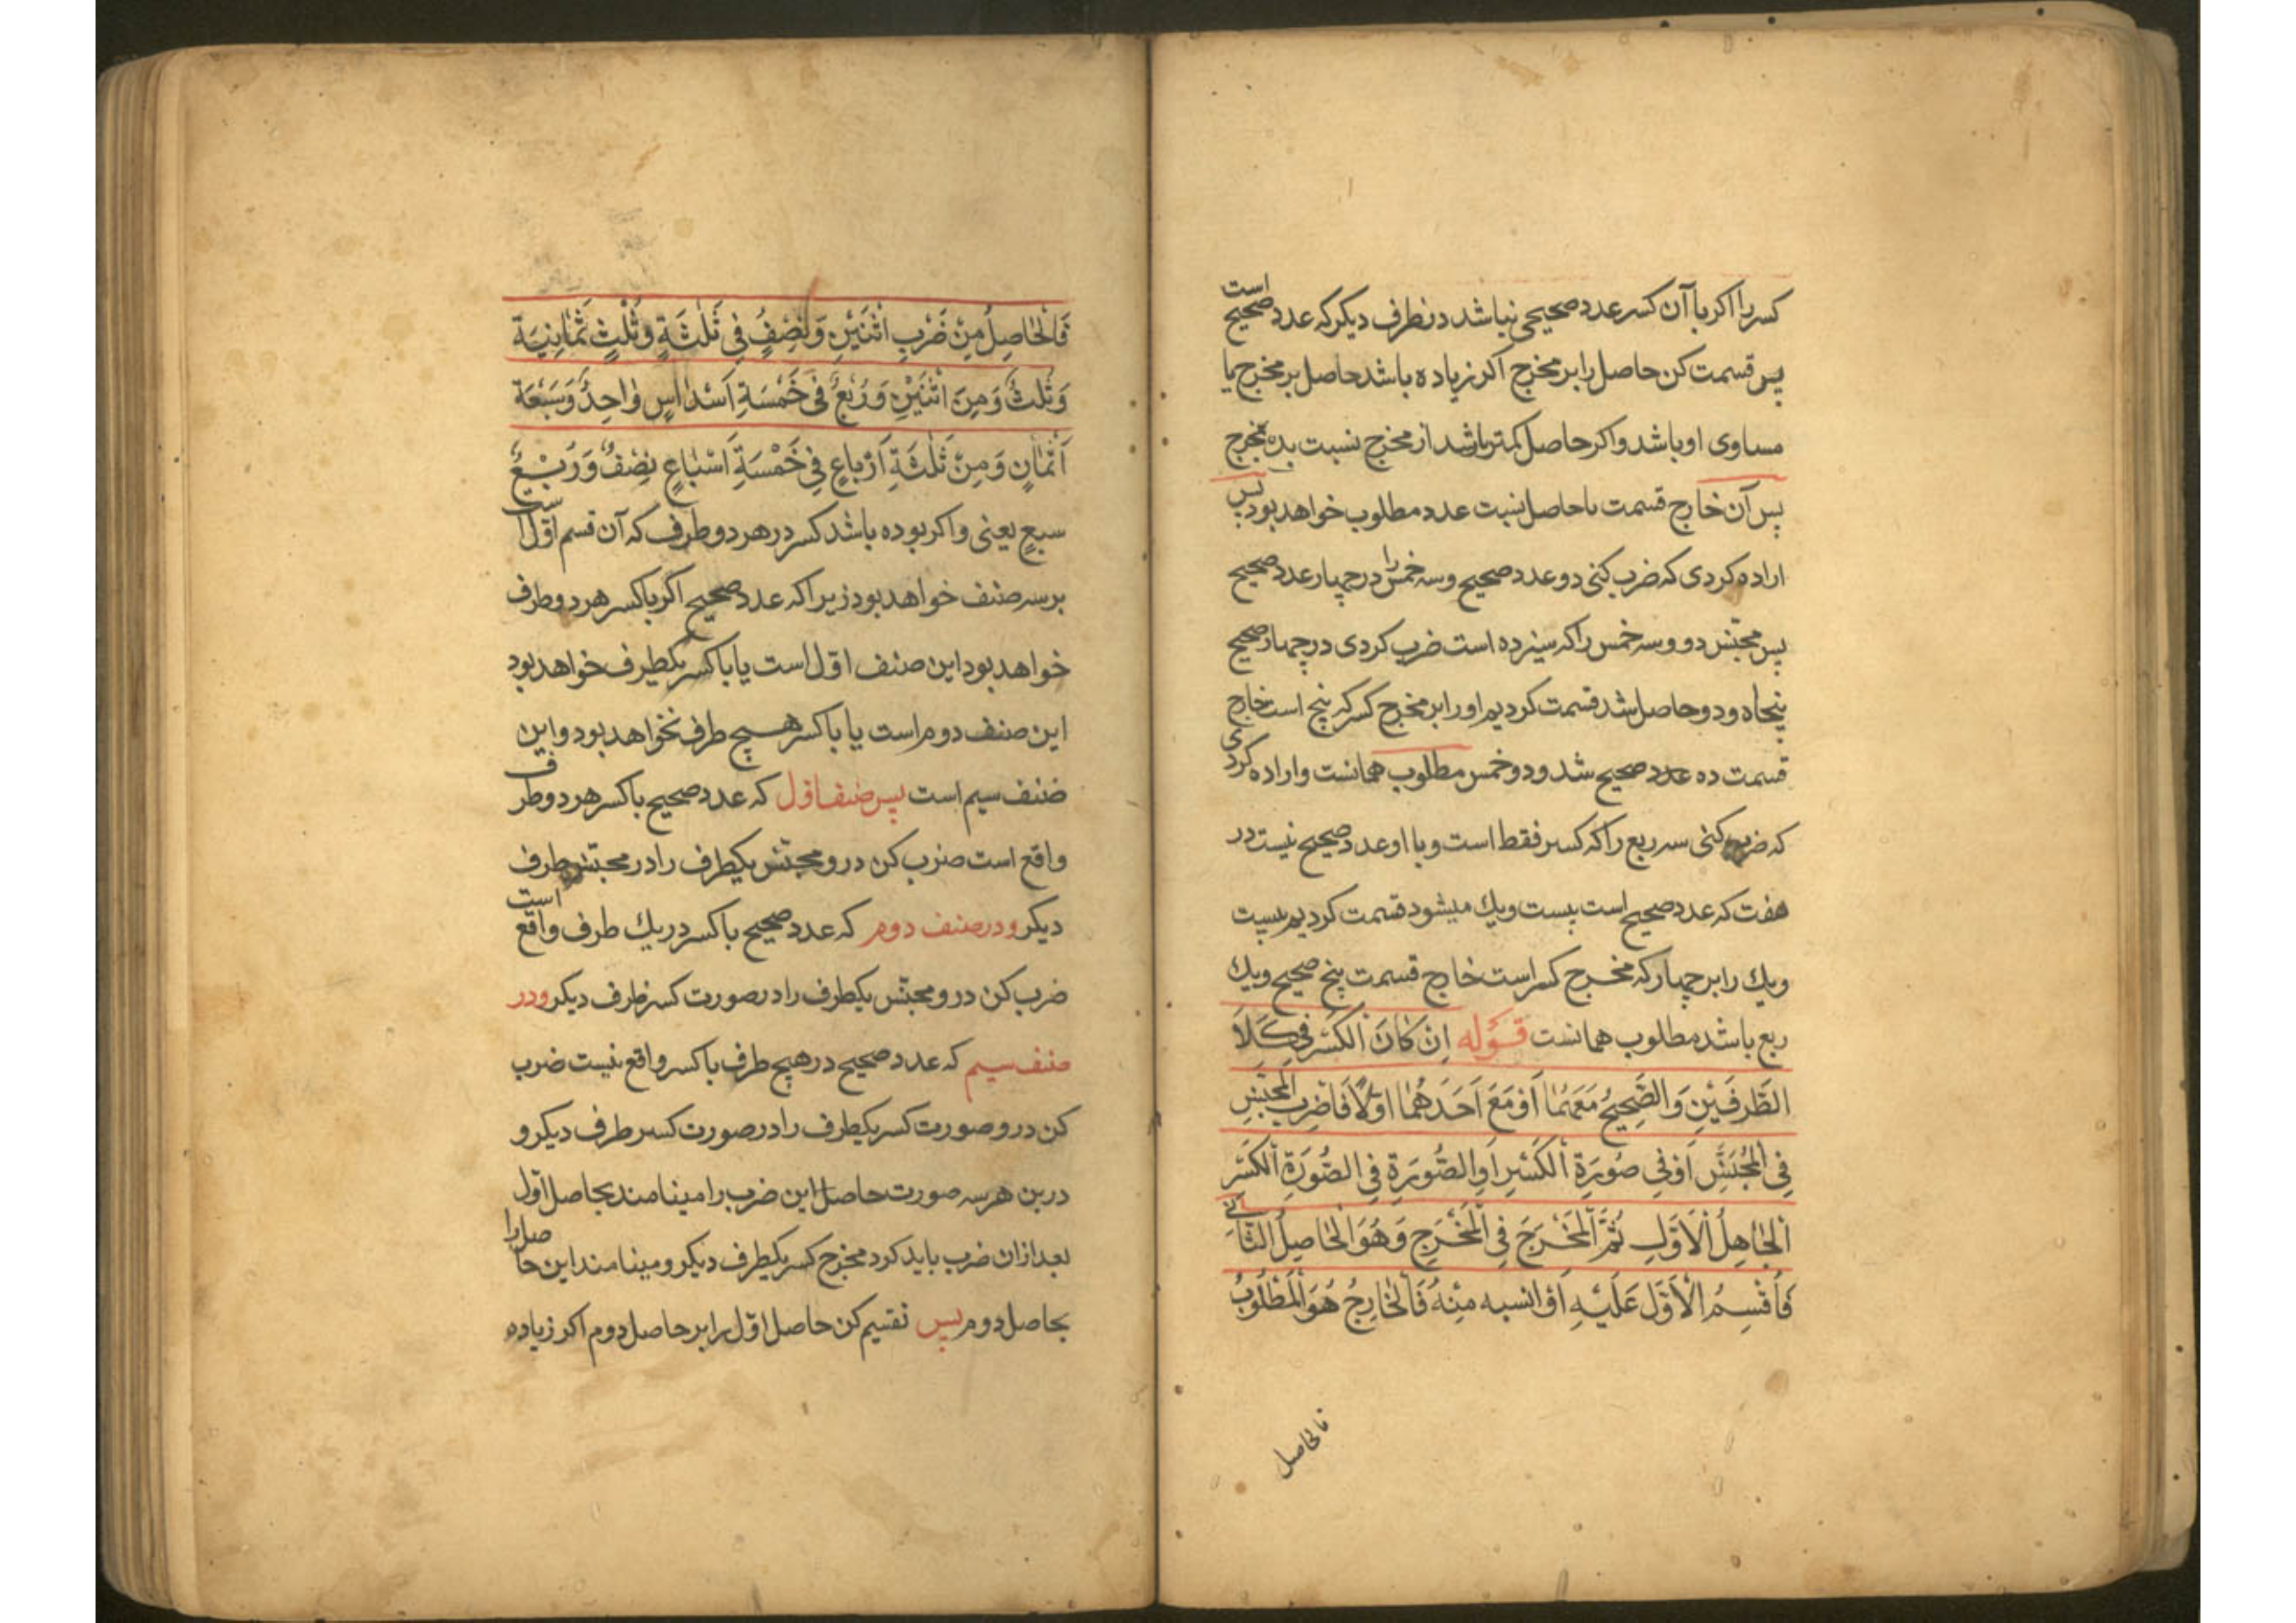 كسر را اكر با آن كسر عدد صحيحى نباشد در طرف ديكر كه عدد صحيح است
پس قسمت كن حاصل را بر مخرج اكر زياده باشد حاصل بر مخرج يا
مساوى او باشد و اكر حاصل كمتر باشد از مخرج نسبت بده بمخرج
پس آن خارج قسمت يا حاصل نسبت عدد مطلوب خواهد بود پس
اراده كردى كه ضرب كنى دو عدد صحيح و سه خمس را در چهار عدد صحيح
پس مجنّس دو و سه خمس را كه سيزده است ضرب كردى در چهار صحيح
پنجاه و دو حاصل شد قسمت كرديم او را بر مخرج كسر كه پنج است خارج
قسمت ده عدد صحيح شد و دو خمس مطلوب همانست و اراده كردى
كه ضرب كنى سه ربع را كه كسر فقط است و با او عدد صحيح نيست در
هفت كه عدد صحيح است بيست ويك ميشود قسمت كرديم بيست
ويك را بر چهار كه مخرج كسر است خارج قسمت پنج صحيح ويك
ربع باشد مطلوب همانست قَوْله اِنْ كٰانَ الْكَسْر فِى كَلَا
الطَّرفَيْنِ وَالصَّحِيحُ مَعَهُمٰا اَوْ مَعَ اَحَدَهُمٰا اَوْلَا فَاضْرِب الْمُجَنَّسِ
فِى الْمُجَنَّسِ اَوْ فِى صُورَةِ الْكَسْرِ اَوِ الصُّورَةِ فِى الصُّورَةِ الْكَسْر
اَلْحٰاصِلُ الْاَوَّلِ ثُمَّ الْمَخْرَجَ فِى الْمَخْرَجِ وَهُوَ الْحٰاصِلُ الثّٰانِى
فَاقْسِمُ الْاَوَّل عَلَيْهِ اَوْ انسبه مِنْهُ فَالْخٰارِجُ هُوَ الْمَطْلُوبُ
فالحاصل
فَالْحٰاصِلُ مِنْ ضَرْبِ اثْنَيْنِ وَنِصْفُ فِى ثَلٰثَةٍ وَثُلْثٍ ثَمٰانِيَة
وَثُلثٌ وَمِنَ اثْنَيْنِ وَرُبْعُ فِى خَمْسَةِ اَسْدٰاسٍ وٰاحِدٌ وَسَبْعَة
اَثْمٰانٍ وَمِنْ ثَلٰثَةِ اَرْبٰاعٍ فِى خَمْسَةِ اَسْبٰاعٍ نِصْفُ وَرُبْعُ
سبعٍ يعنى و اكر بوده باشد كسر در هر دو طرف كه آن قسم اوّل است
بر سه صنف خواهد بود زيرا كه عدد صحيح اكر با كسر هر دو طرف
خواهد بود اين صنف اوّل است يا با كسر يكطرف خواهد بود
اين صنف دوم است يا با كسر هيچ طرف نخواهد بود و اين
صنف سيم است پس صنف اوّل كه عدد صحيح با كسر هر دو طرف
واقع است ضرب كن در و مجنّس يكطرف را در مجنّس طرف
ديكر و در صنف دوم كه عدد صحيح با كسر در يك طرف واقع است
ضرب كن در و مجنّس يكطرف را در صورت كسر طرف ديكر و در
صنف سيم كه عدد صحيح در هيچ طرف با كسر واقع نيست ضرب
كن در و صورت كسر يكطرف را در صورت كسر طرف ديكر و
درين هر سه صورت حاصل اين ضرب را مينامند بحاصل اوّل
بعد از ان ضرب بايد كرد مخرج كسر يكطرف ديكر و مينامند اين حاصل را
بحاصل دوم پس تقسيم كن حاصل اوّل را بر حاصل دوم اكر زياده